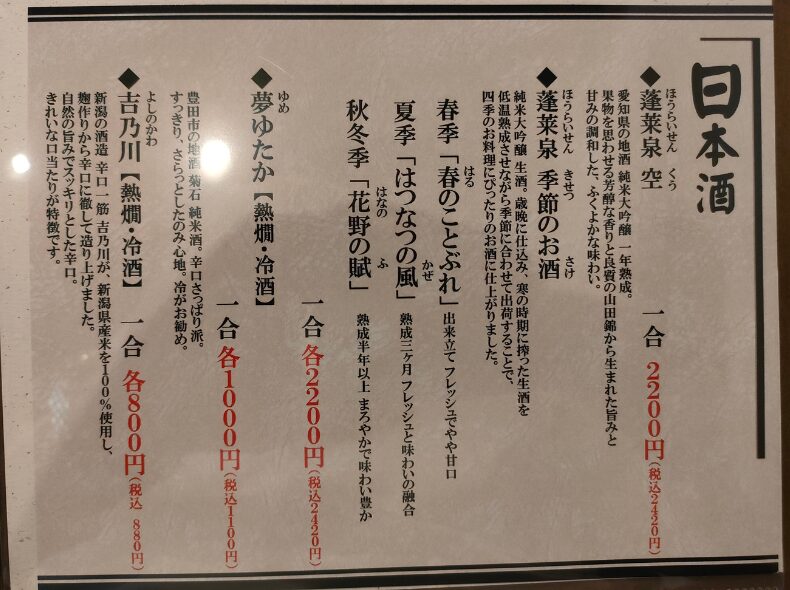 日本酒
◆蓬莱泉 空
ほうらいせん くう
愛知県の地酒 純米大吟醸 一年熟成。
果物を思わせる芳醇な香りと良質の山田錦から生まれた旨みと
甘みの調和した、ふくよかな味わい。
一合 2200円(税込2420円)
◆蓬莱泉 季節のお酒
ほうらいせん きせつ さけ
純米大吟醸 生酒。歳晩に仕込み、寒の時期に搾った生酒を
低温熟成させながら季節に合わせて出荷することで、
四季のお料理にぴったりのお酒に仕上がりました。
春季「春のことぶれ」出来立て フレッシュでやや甘口
はる
夏季「はつなつの風」熟成三ヶ月 フレッシュと味わいの融合
かぜ
秋冬季「花野の賦」熟成半年以上 まろやかで味わい豊か
はなの ふ
一合 各2200円(税込2420円)
◆夢ゆたか【熱燗・冷酒】
ゆめ
一合 各1000円(税込1100円)
豊田市の地酒 菊石 純米酒。辛口さっぱり派。
すっきり、さらっとしたのみ心地。冷がお勧め。
◆吉乃川【熱燗・冷酒】 一合 各800円(税込 880円)
よしのかわ
新潟の酒造 辛口一筋 吉乃川が、新潟県産米を100%使用し、
麹作りから辛口に徹して造り上げました。
自然の旨みでスッキリとした辛口。
きれいな口当たりが特徴です。